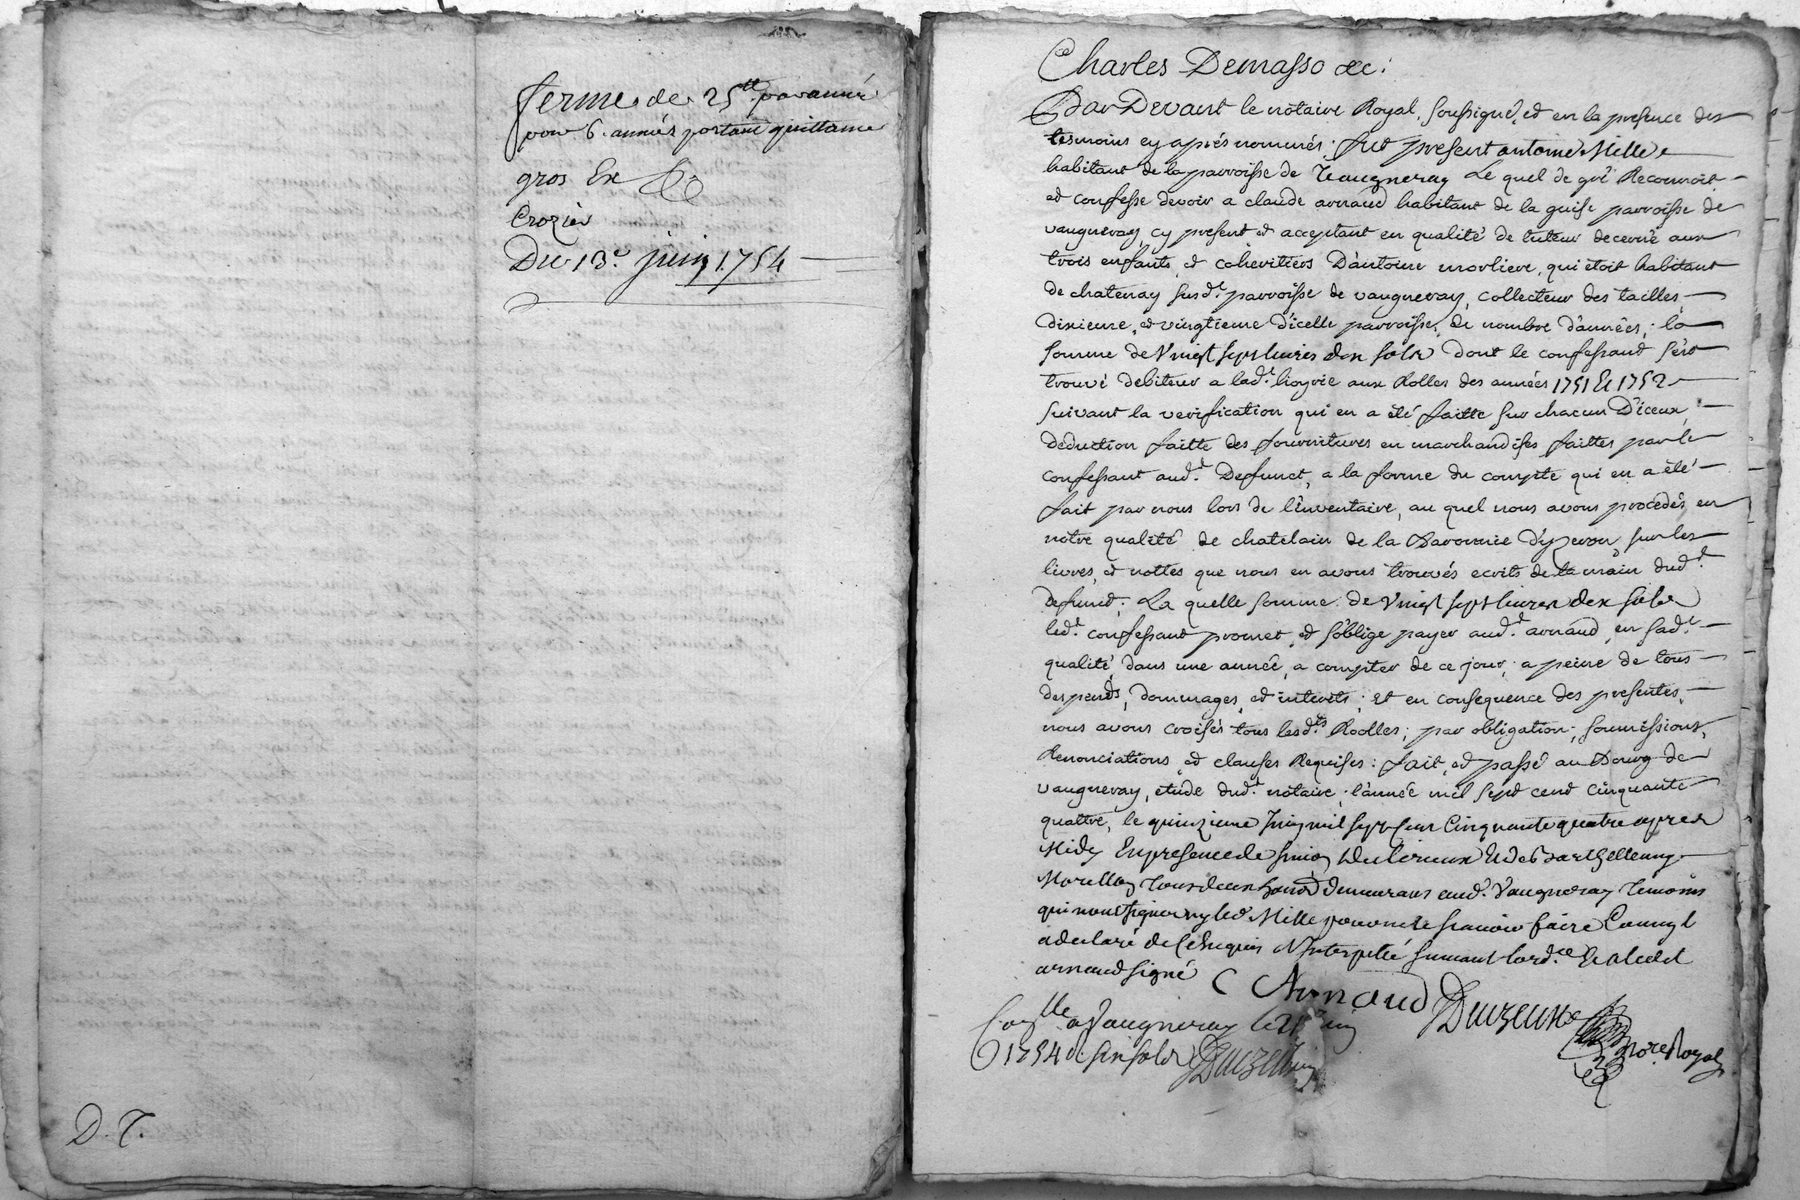 ferme de 25tt par année
pour 6. années portant quittance
gros Ex
Crozier
Du 13e. juin 1754
D. T.
Charles Demasso &c:
Par Devant le notaire Royal, soussigné, et en la presence des
tesmoins cy aprés nommés: fut present antoine Mille
habitant de la parroisse de Vaugneray Le quel de gré Reconnoit
et confesse devoir a claude arnaud habitant de la guise parroisse de
vaugneray cy present et acceptant en qualité de tuteur decerné aux
trois enfants, et coheritiers D'antoine morlier, qui étoit habitant
de chatenay susd.t parroisse de vaugneray, collecteur des tailles
dixieme, et vingtieme d'icelle parroisse, de nombre d'années; la
somme de Vingt sept livres dix sols dont le confessant s'est
trouvé debiteur a lad.t hoyrie aux Rolles des années 1751 Et 1752
suivant la verification qui en a été faitte sur chacun D'iceux,
deduction faitte des fournitures en marchandises faittes par le
confessant aud.t Defunct, a la forme du compte qui en a été
fait par nous lors de l'inventaire, au quel nous avons procedés, en
notre qualité de chatelain de la Baronnie d'yzeron sur les
livres, et nottes que nous en avons trouvés ecrits de la main dud.t
defunct; La quelle somme de Vingt sept livres dix sols
led.t confessant promet, et s'oblige payer aud.t arnaud, en sad.t
qualité, dans une année, a compter de ce jour, a peine de tous
despends, dommages, et interets; et en consequence des presentes,
nous avons croisés tous lesd.ts Roolles; par obligation, soumissions,
Renonciations, et clauses Requises: fait, et passé au Bourg de
vaugneray, étude dud.t notaire; l'année mil sept cent cinquante
quattre, le quinzieme Juin mil sept cent Cinquante quatre apres
Midy En presence de simon Et de Barthellemy
Morellon tous deux demeurans aud.t Vaugneray temoins
qui n'ont signé ny led Mille pour ne le scavoir faire Comm'il
a declaré de ce Enquis et Interpellé suivant l'ord.ce Et a led.t
arnaud signé
C Arnaud Duizerin
No.re Royal
Con.lle a Vaugneray le juin
1754 sols